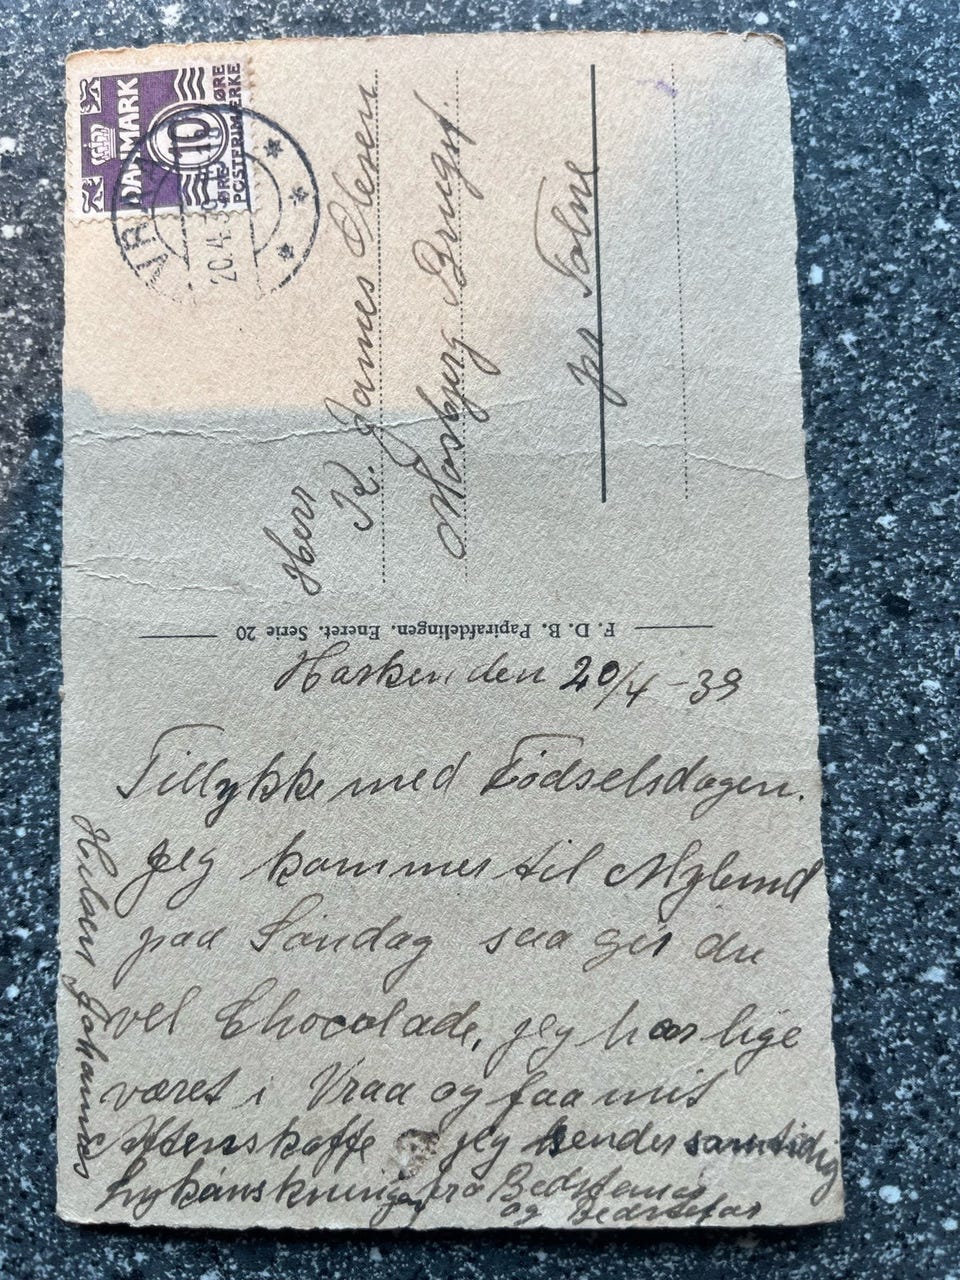 DANMARK
10
ØRE ØRE
POSTFRIMÆRKE
VR
20.4.39
Herr
K. James Olesen
Mosbjerg Brugsf.
pr Tolne
F. D. B. Papirafdelingen. Eneret. Serie 20
Harken den 20/4 - 39
Tillykke med Fødselsdagen.
jeg kommer til Mylund
paa Søndag saa gir du
vel Chocolade, jeg har lige
været i Vraa og faa mit
Aftenskaffe jeg sender samtidig
lrykønskninger fra Bedstemor
og Bedstefar
Hilsen Johannes